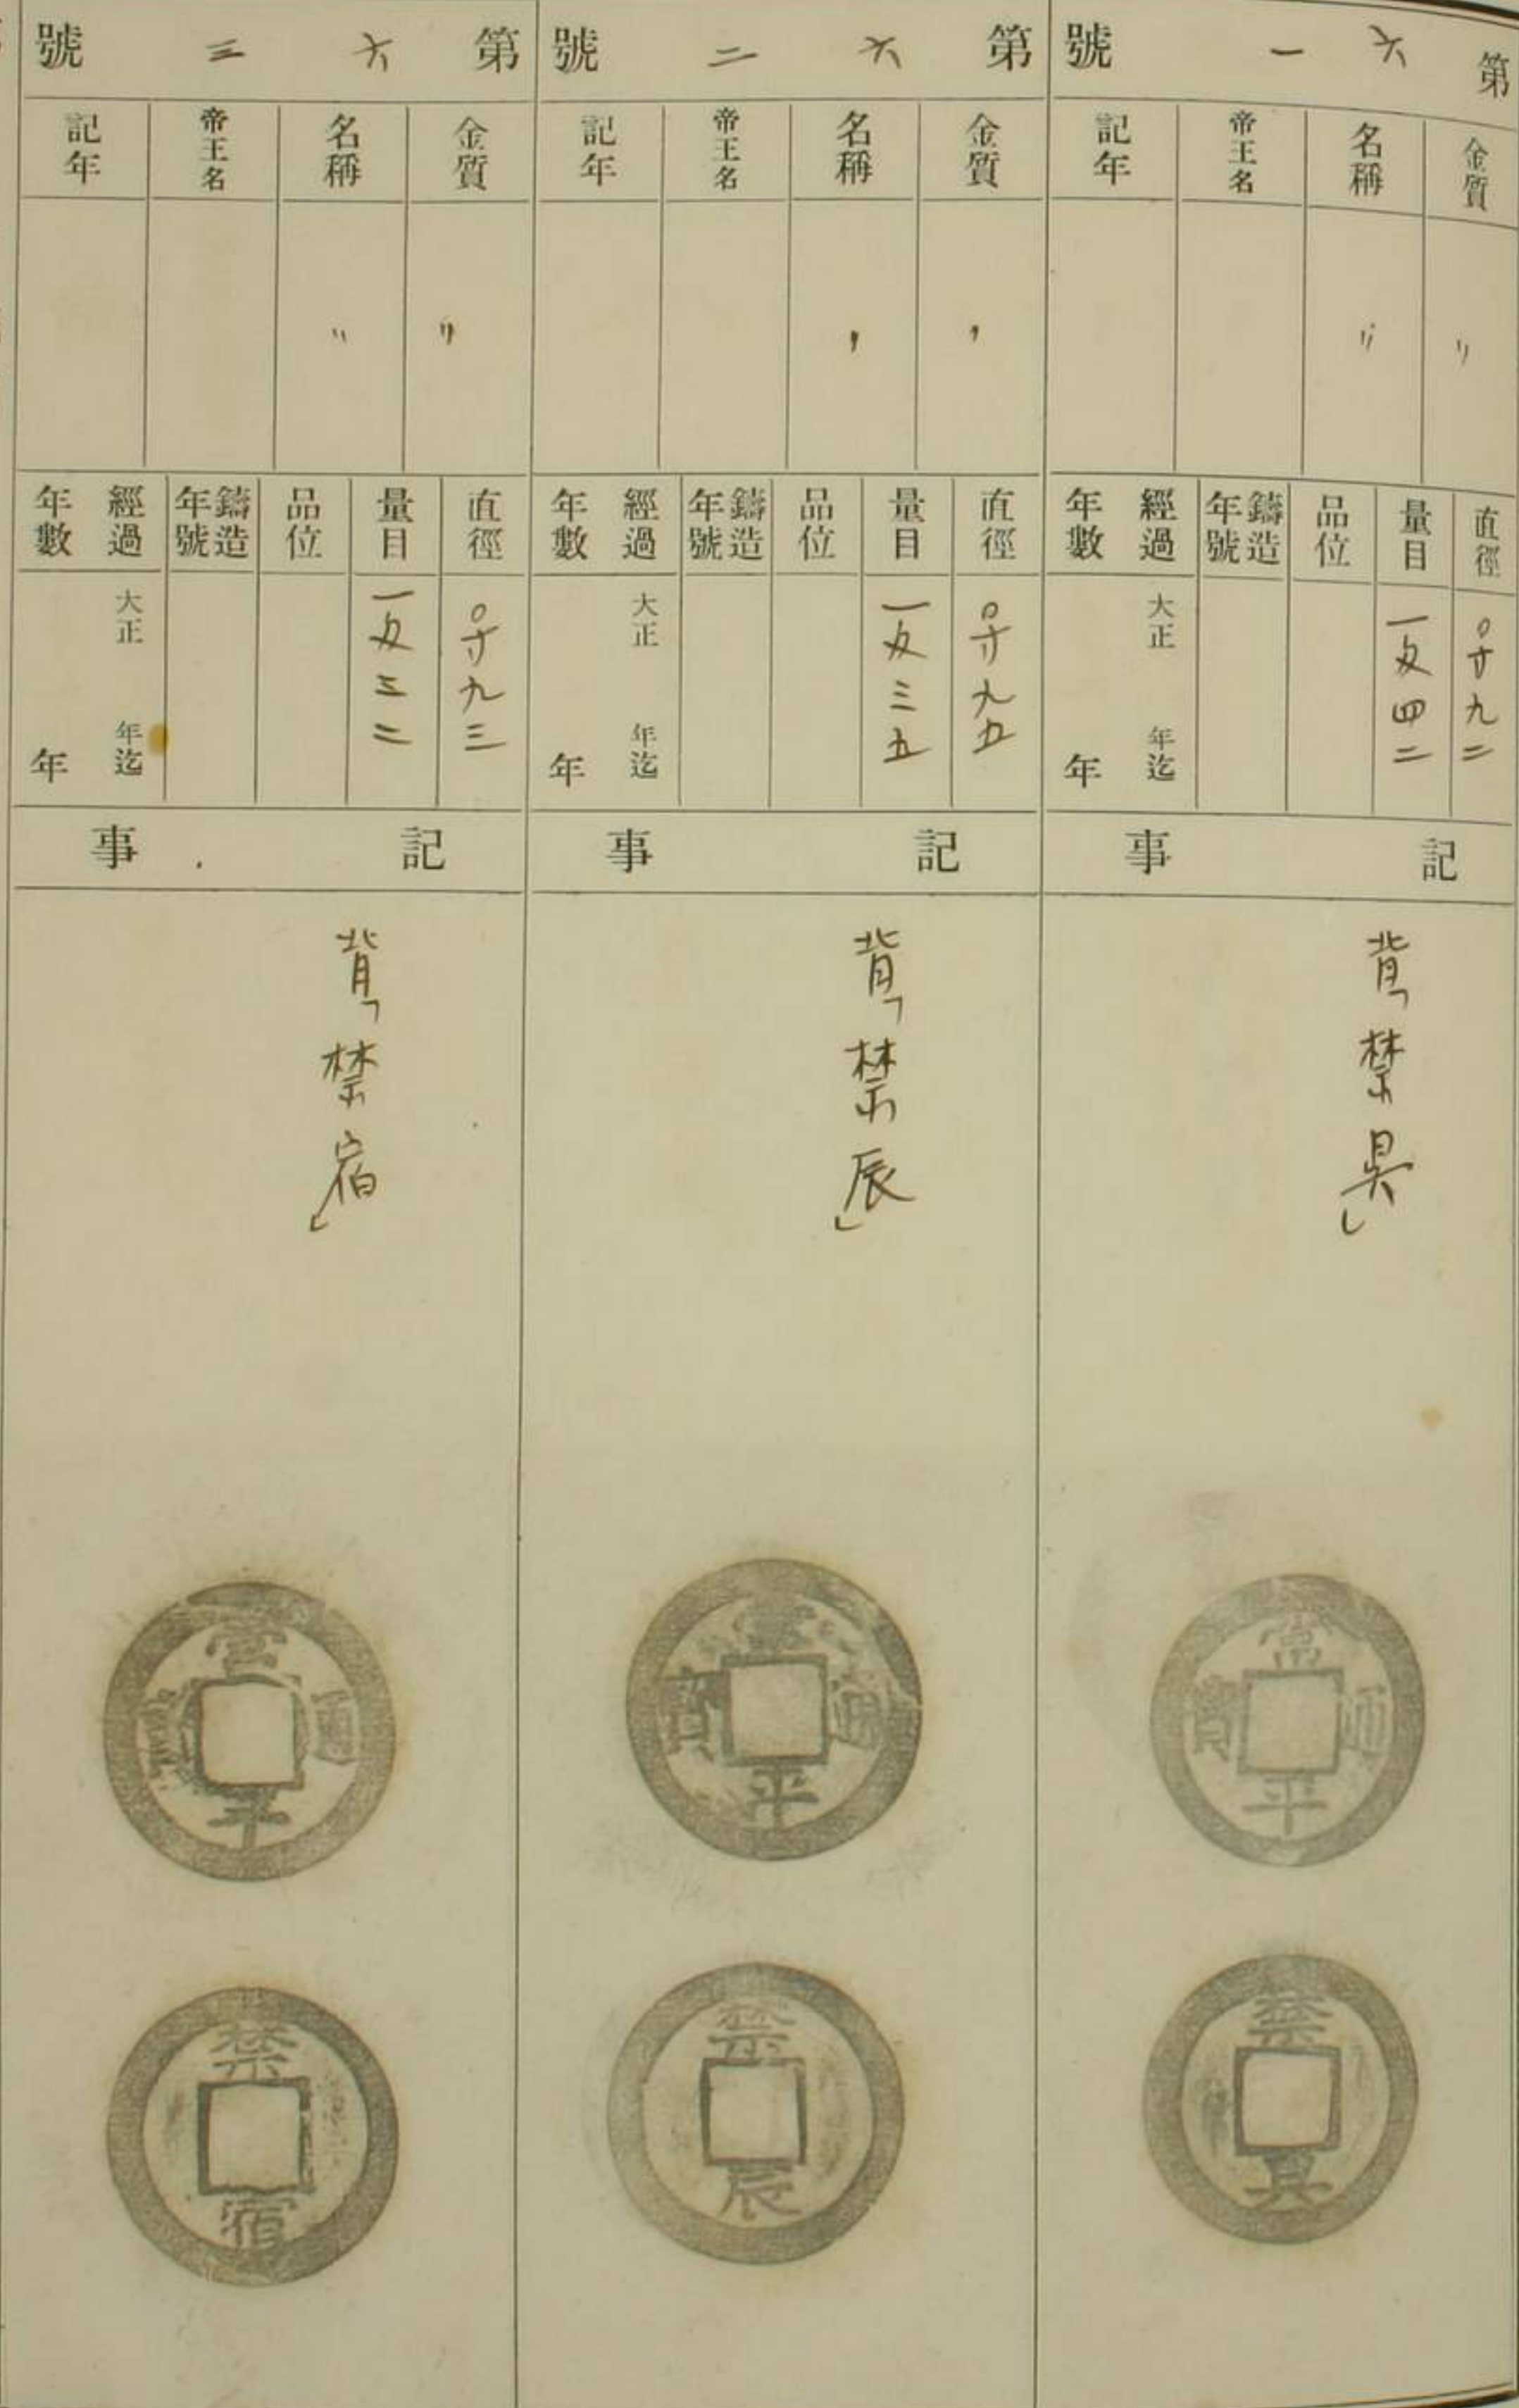 第六一號
金質
〃
名稱
〃
帝王名
記年
直徑
〇寸九二
量目
一匁四二
品位
鑄造年號
經過年數
大正 年迄
年
記事
背「禁昃」
常平通寶
禁昃
第六二號
金質
〃
名稱
〃
帝王名
記年
直徑
〇寸九五
量目
一匁三五
品位
鑄造年號
經過年數
大正 年迄
年
記事
背「禁辰」
常平通寶
禁辰
第六三號
金質
〃
名稱
〃
帝王名
記年
直徑
〇寸九三
量目
一匁三二
品位
鑄造年號
經過年數
大正 年迄
年
記事
背「禁宿」
常平通寶
禁宿